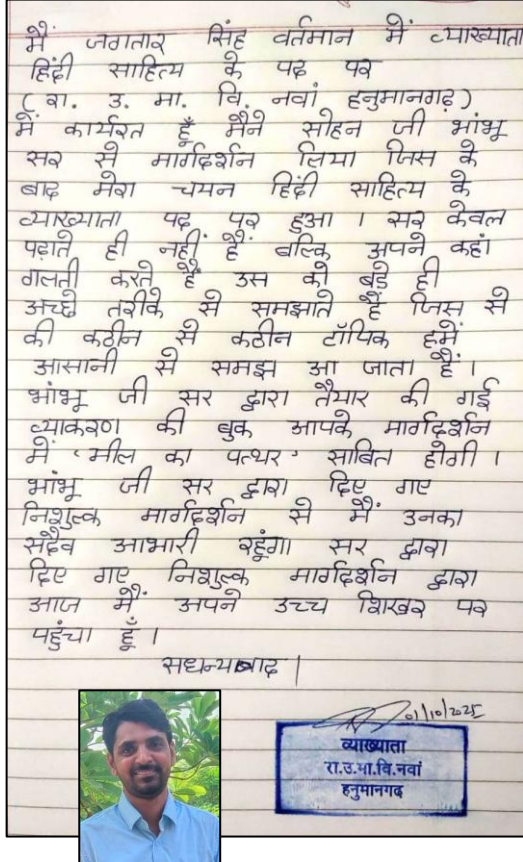 मैं जगतार सिंह वर्तमान में व्याख्याता
हिंदी साहित्य के पद पर
( रा. उ. मा. वि. नवां हनुमानगढ़)
में कार्यरत हूँ मैने सोहन जी भांभू
सर से मार्गदर्शन लिया जिस के
बाद मेरा चयन हिंदी साहित्य के
व्याख्याता पद पर हुआ । सर केवल
पढ़ाते ही नहीं हैं बल्कि अपने कहां
गलती करते हैं उस को बडे ही
अच्छे तरीके से समझाते हैं जिस से
की कठीन से कठीन टॉपिक हमें
आसानी से समझ आ जाता हैं ।
भांभू जी सर द्वारा तैयार की गई
व्याकरण की बुक आपके मार्गदर्शन
में 'मील का पत्थर' साबित होगी ।
भांभू जी सर द्वारा दिए गए
निशुल्क मार्गदर्शन से मैं उनका
सदैव आभारी रहूंगा सर द्वारा
दिए गए निशुल्क मार्गदर्शन द्वारा
आज मैं अपने उच्च शिखर पर
पहुंचा हूँ ।
सधन्यवाद |
01/10/2025
व्याख्याता
रा.उ.मा.वि.नवां
हनुमानगढ